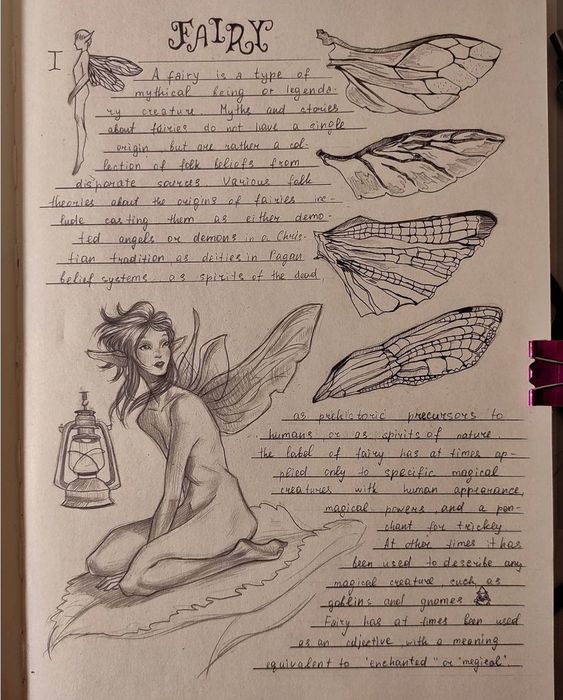 FAIRY
I
A fairy is a type of
mythical being or legenda-
ry creature. Myths and stories
about fairies do not have a single
origin, but are rather a col-
lection of folk beliefs from
disparate sources. Various folk
theories about the origins of fairies inc-
lude casting them as either demo-
ted angels or demons in a Chris-
tian tradition, as deities in Pagan
belief systems, as spirits of the dead,
as prehistoric precursors to
humans, or as spirits of nature.
The label of fairy has at times ap-
plied only to specific magical
creatures with human appearance,
magical powers, and a pen-
chant for trickley.
At other times it has
been used to describe any
magical creature, such as
goblins and gnomes
Fairy has at times been used
as an adjective, with a meaning
equivalent to "enchanted" or "megical".